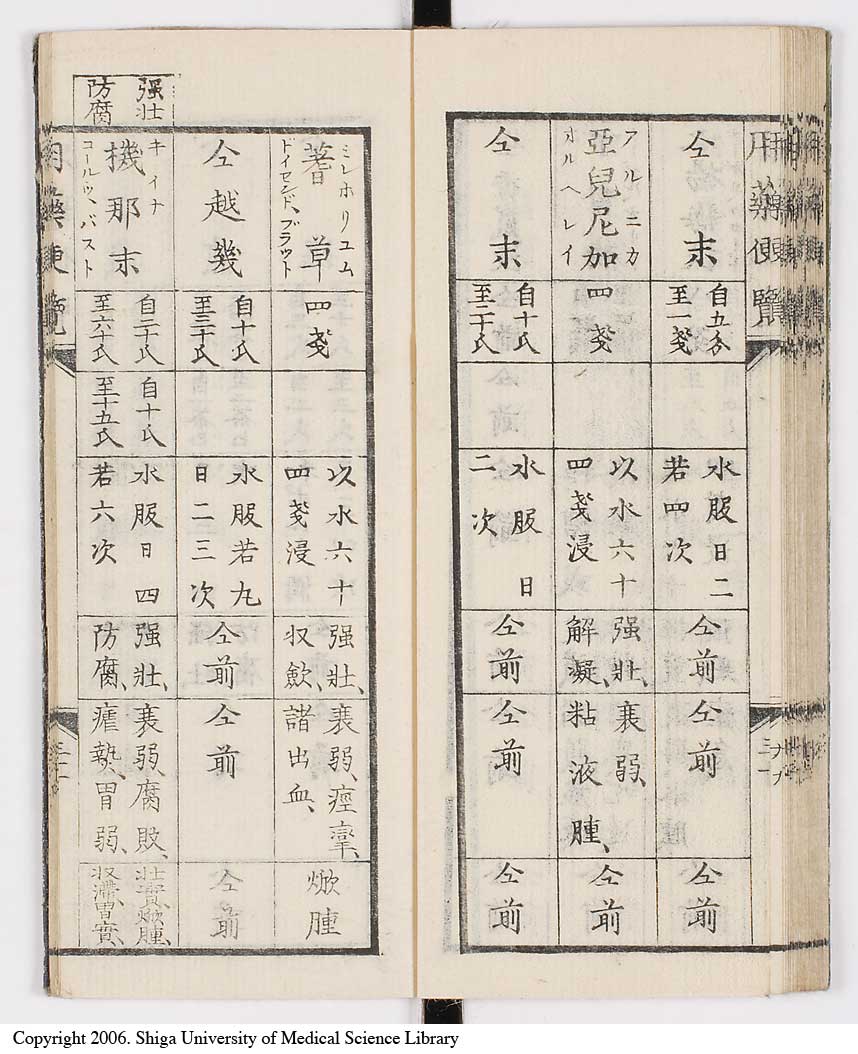 用藥便覽
仝末
自五分
至一戔
水服日二
若四次
仝前
仝前
仝前
アルニカ
亞兒尼加
オルヘレイ
四戔
以水六十
四戔浸
强壮、
解凝、
衰弱、
粘液腫、
仝前
仝末
自十氏
至二十氏
水服日
二次
仝前
仝前
仝前
ミレホリユム
蓍草
ドイセンド、ブラット
四戔
以水六十
四戔浸
强壮、
収斂、
衰弱、痙攣、
諸出血、
焮腫
仝越幾
自十氏
至三十氏
水服若九
日二三次
仝前
仝前
仝前
强壮
防腐
キイナ
機那末
コールツ、バスト
自二十氏
至六十氏
自十氏
至十五氏
水服日四
若六次
强壮、
防腐、
衰弱、腐敗、
瘧熱、胃弱、
壮實、焮腫、
収滯、胃實、
用藥便覽